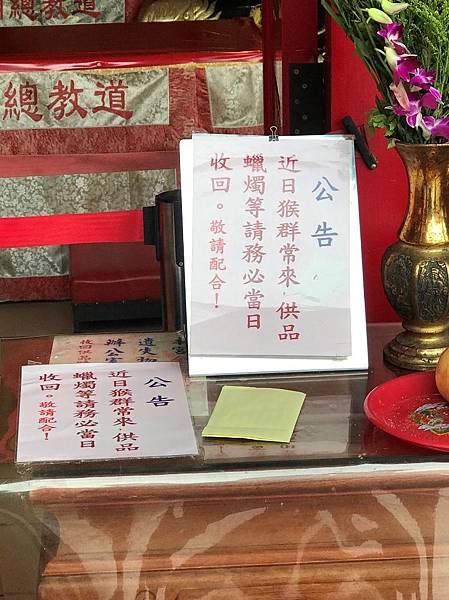 總教道
總教道
公告
近日猴群常來,供品
蠟燭等請務必當日
收回。敬請配合!
公告
近日猴群常來,供品
蠟燭等請務必當日
收回。敬請配合!
辦公室
收回供品